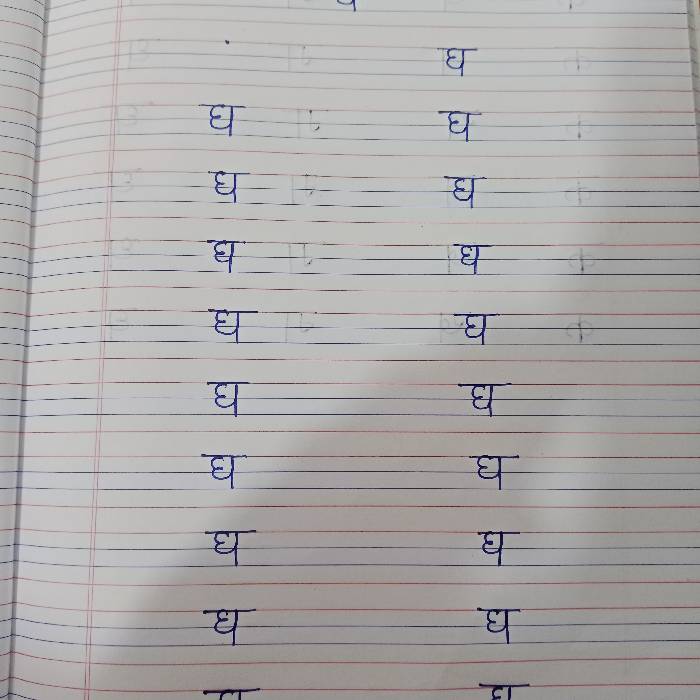 घ
घ घ
घ घ
घ घ
घ घ
घ घ
घ घ
घ घ
घ घ